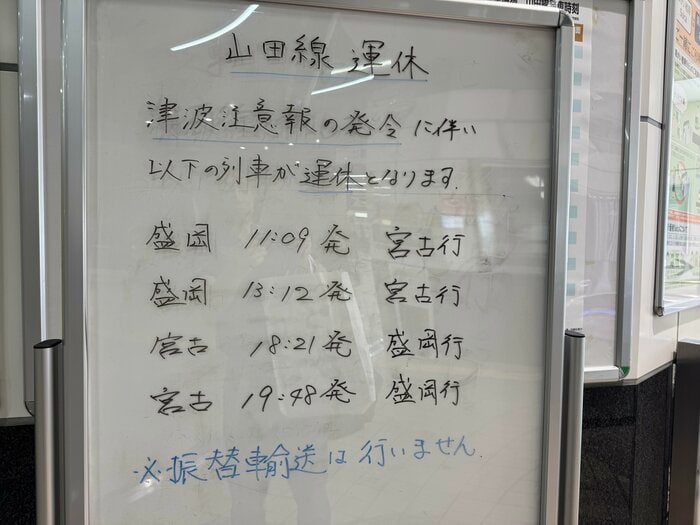 山田線 運休
津波注意報の発令に伴い
以下の列車が運休となります.
盛岡 11:09発 宮古行
盛岡 13:12発 宮古行
宮古 18:21発 盛岡行
宮古 19:48発 盛岡行
※振替輸送は行いません.